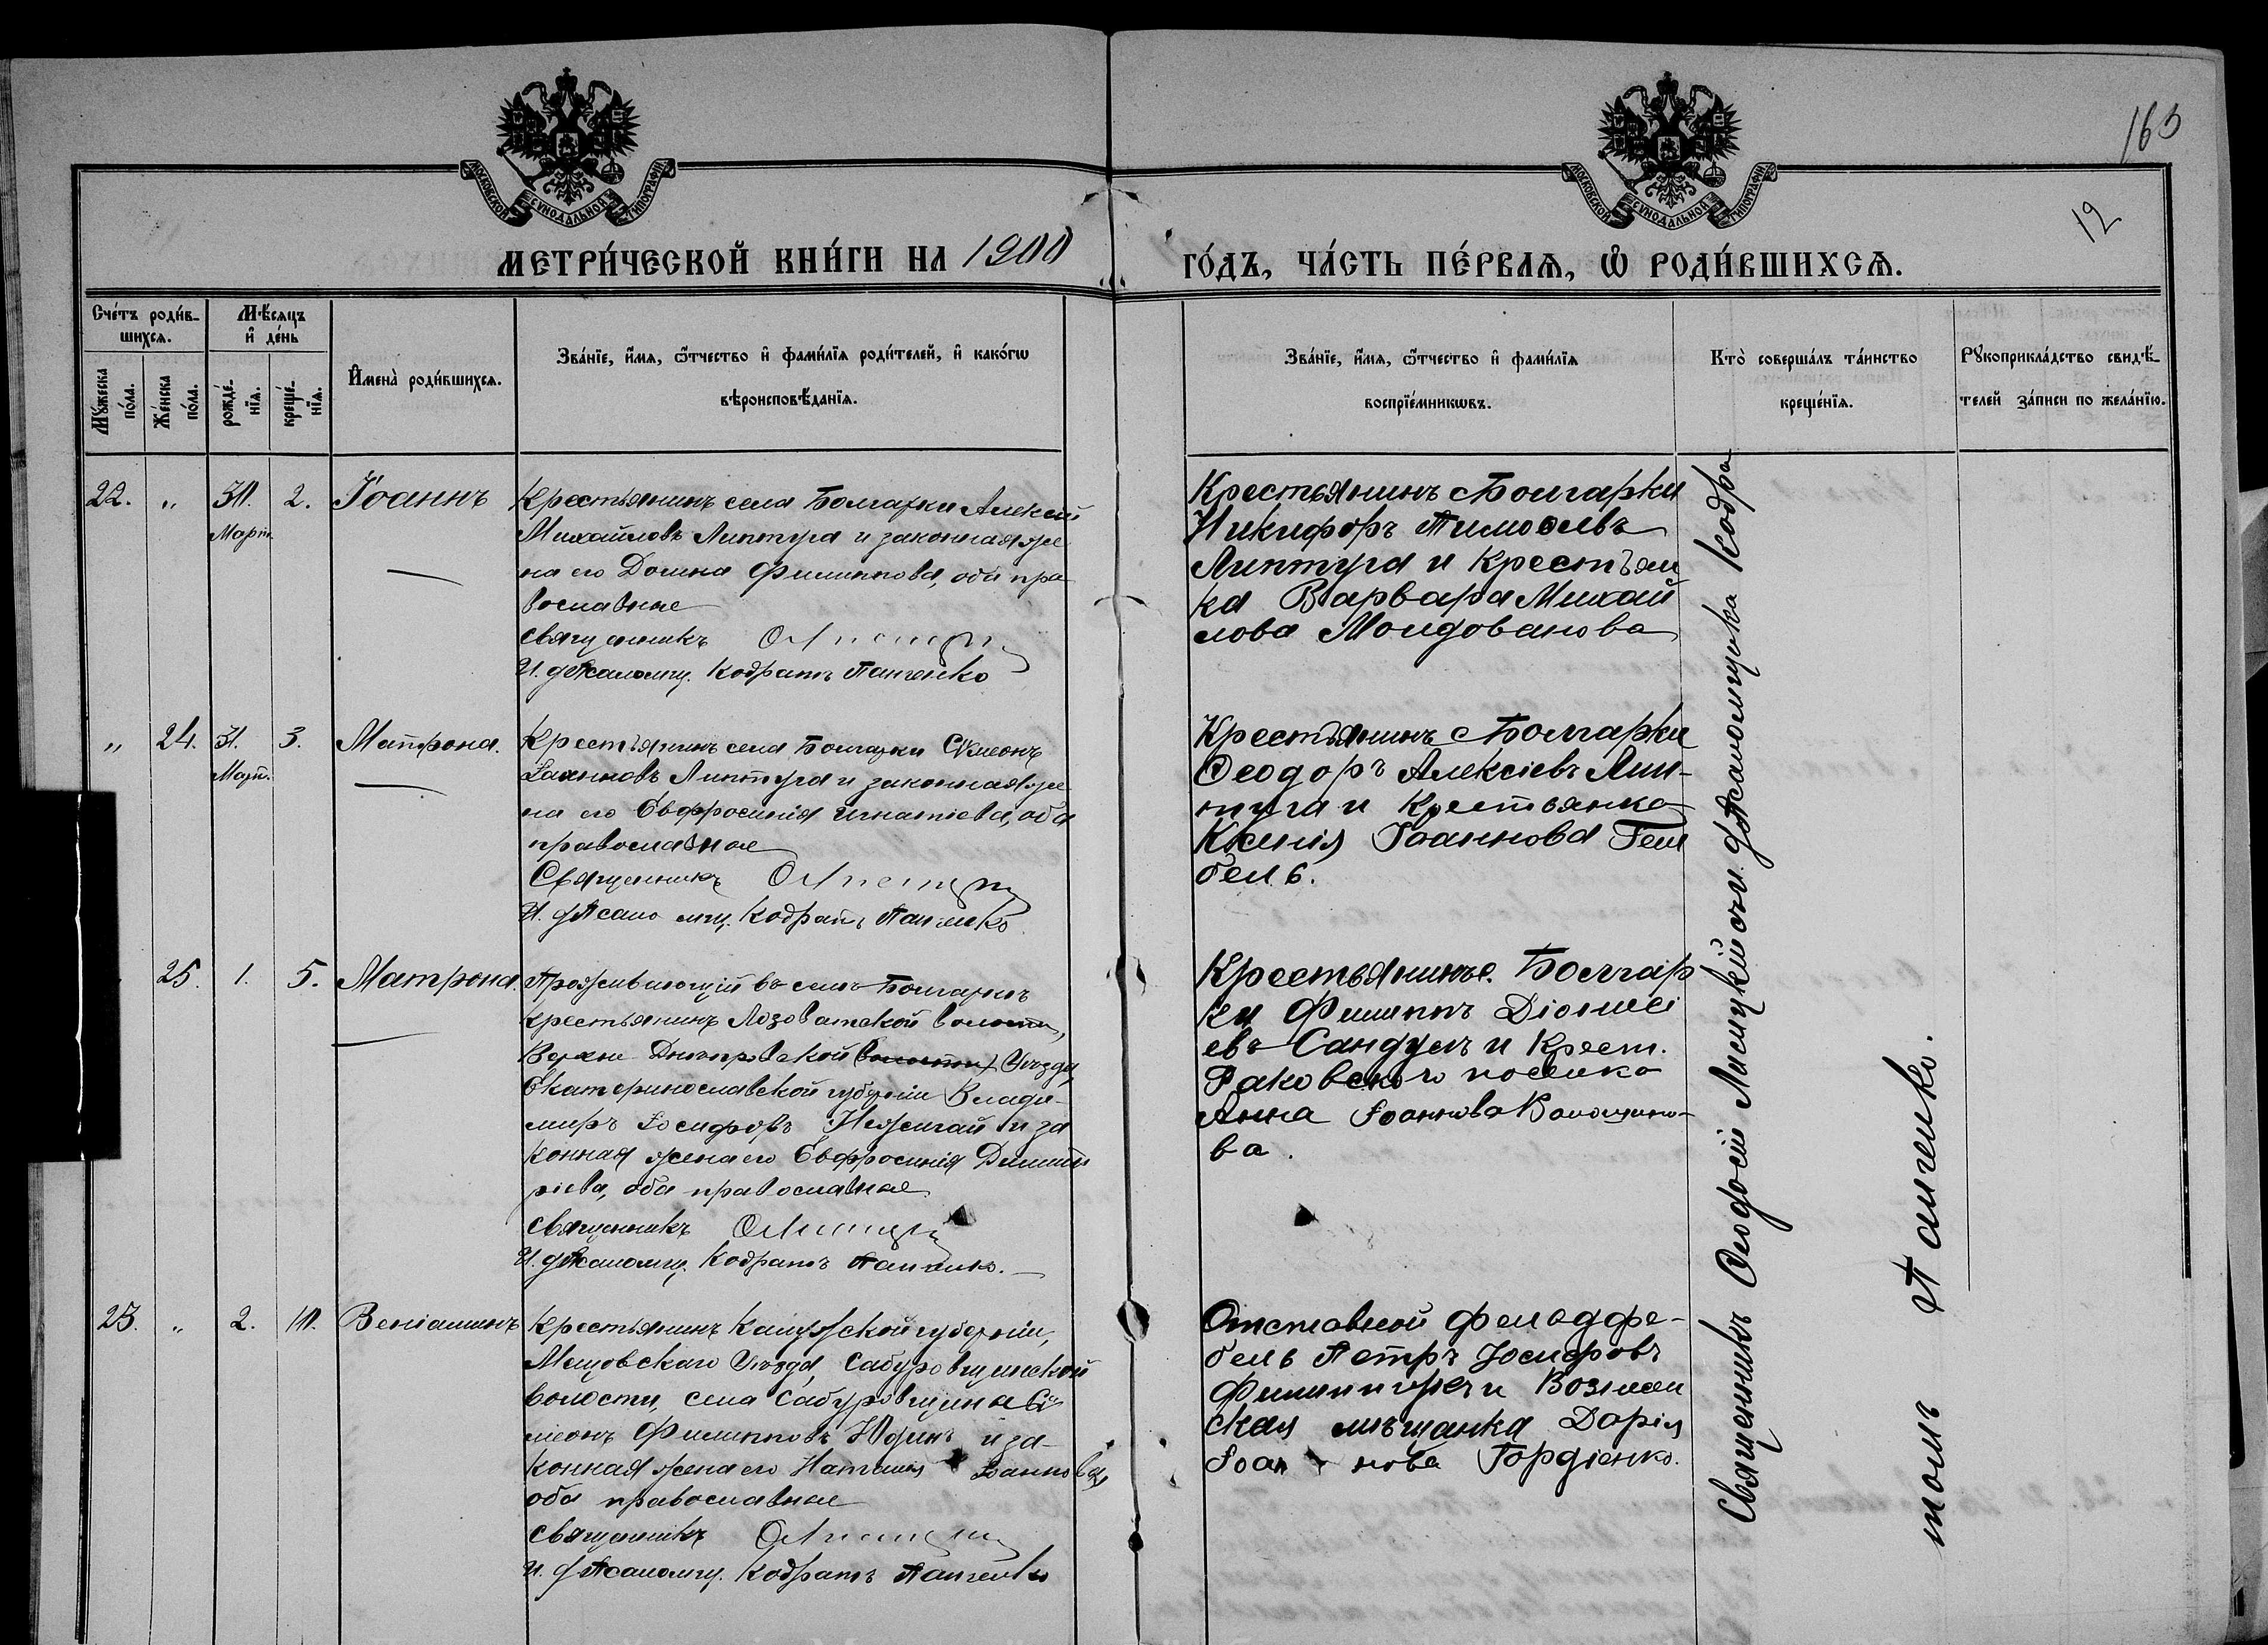 163
12
МОСКОВСКОЙ СѴНОДАЛЬНОЙ ТИПОГРАФІИ
МОСКОВСКОЙ СѴНОДАЛЬНОЙ ТИПОГРАФІИ
МЕТРИ́ЧЕСКОЙ КНИ́ГИ НА 1900 ГО́ДЪ, ЧА́СТЬ ПЕ́РВАѦ, Ѽ РОДИ́ВШИХСѦ.
Сче́тъ роди́в-
шихсѧ.
Мꙋ́жеска по́ла.
Же́нска по́ла.
Мѣ́сѧцъ
и҆ де́нь
рожде́-
нїѧ.
креще́-
нїѧ.
И҆мена̀ роди́вшихсѧ.
Зва́нїе, и҆́мѧ, ѻ҆́тчество и҆ фами́лїѧ роди́телей, и҆ како́гѡ
вѣроисповѣ́данїѧ.
Зва́нїе, и҆́мѧ, ѻ҆́тчество и҆ фами́лїѧ
воспрїе́мникѡвъ.
Кто̀ соверша́лъ та́инство
креще́нїѧ.
Рꙋкоприкла́дство свидѣ́-
телей за́писи по жела́нїю.
22. „ 30. 2. Іоаннъ
Март.
Крестьянинъ села Болгарки Алексѣй
Михайловъ Липтуга и законная же
на его Домна Филиппова, оба пра
вославные
Священникъ
И. д. Псаломщ. Кодратъ Панченко
Крестьянинъ с. Болгарки
Никифоръ Тимоѳеевъ
Липтуга и крестьян
ка Варвара Михай
лова Молдованова
„ 24. 31. 3. Матрона.
Март.
Крестьянинъ села Болгарки Симеонъ
Іоанновъ Липтуга и законная же
на его Евфросинія Игнатіева, оба
православные
Священникъ
И. д. Псаломщ. Кодратъ Панченко
Крестьянинъ с. Болгарки
Ѳеодоръ Алексіевъ Лип-
туга и крестьянка
Ксенія Іоаннова Гем
бель.
25. 1. 5. Матрона.
Проживающій въ селѣ Болгаркѣ
крестьянинъ Лозоватской волости,
Верхне Днѣпровской (волости) Уѣзда,
Екатеринославской губерніи Влади-
миръ Іосифовъ Нежигай и за
конная жена его Евфросинія Димит
ріева, оба православные
Священникъ
И. д. Псаломщ. Кодратъ Панченко.
Крестьянинъ с. Болгар
ки Филиппъ Діонисі
евъ Сандулъ и крест.
Раковского поселка
Анна Іоаннова Волощино-
ва.
23. „ 2. 10. Веніаминъ
Крестьянинъ Калужской губерніи,
Мещовскаго Уѣзда, Сабуровщинской
волости, села Сабуровщина Си
меонъ Филипповъ Юдинъ и за-
конная жена его Наталія Іоаннова,
оба православные
Священникъ
И. д. Псаломщ. Кодратъ Панченко
Отставной фельдфе-
бель Петръ Іосифовъ
и Вознесен
ская мѣщанка Дарія
Іоаннова Гордіенко.
Священникъ Ѳеодосій Лисицкій съ и. д. псаломщика Кодра
томъ Панченко.